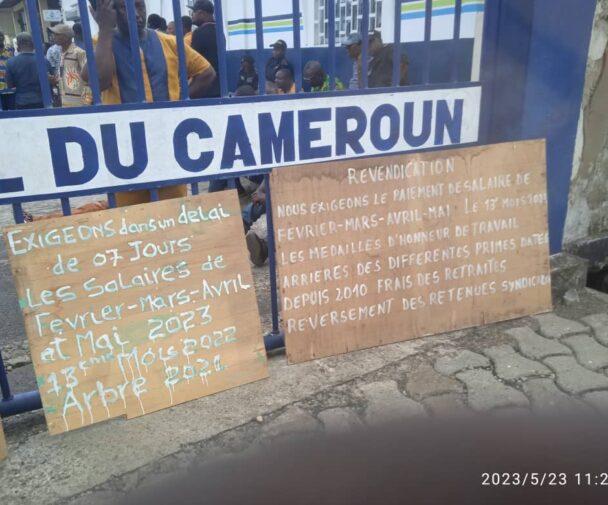 L DU CAMEROUN
EXIGEONS dans un delai
de 07 Jours
Les Salaires de
Fevrier-Mars-Avril
et Mai 2023
13eme Mois 2022
Arbre 2021
REVENDICATION
NOUS EXIGEONS LE PAIEMENT DE SALAIRE DE
FEVRIER-MARS-AVRIL-MAI LE 13e MOIS 2021
LES MEDAILLES D'HONNEUR DE TRAVAIL
ARRIERÉS DES DIFFERENTES PRIMES DATER
DEPUIS 2010 FRAIS DES RETRAITÉS
REVERSEMENT DES RETENUES SYNDICAL
2023/5/23 11:2